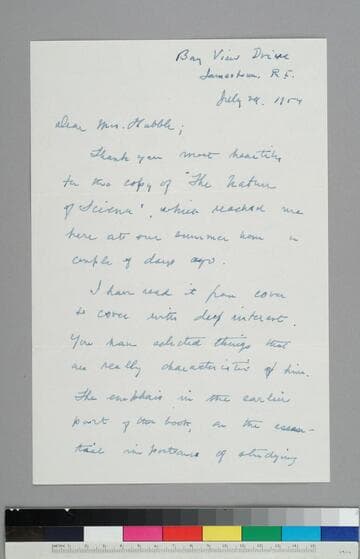 Bay View Drive
Jamestown, R.I.
July 29, 1954
Dear Mrs. Hubble;
Thank you most heartily
for the copy of "The Nature
of Science", which reached me
here at our summer home a
couple of days ago.
I have read it from cover
to cover with deep interest.
You have selected things that
are really characteristic of him.
The emphasis in the earlier
part of the book, on the essen-
tial importance of studying